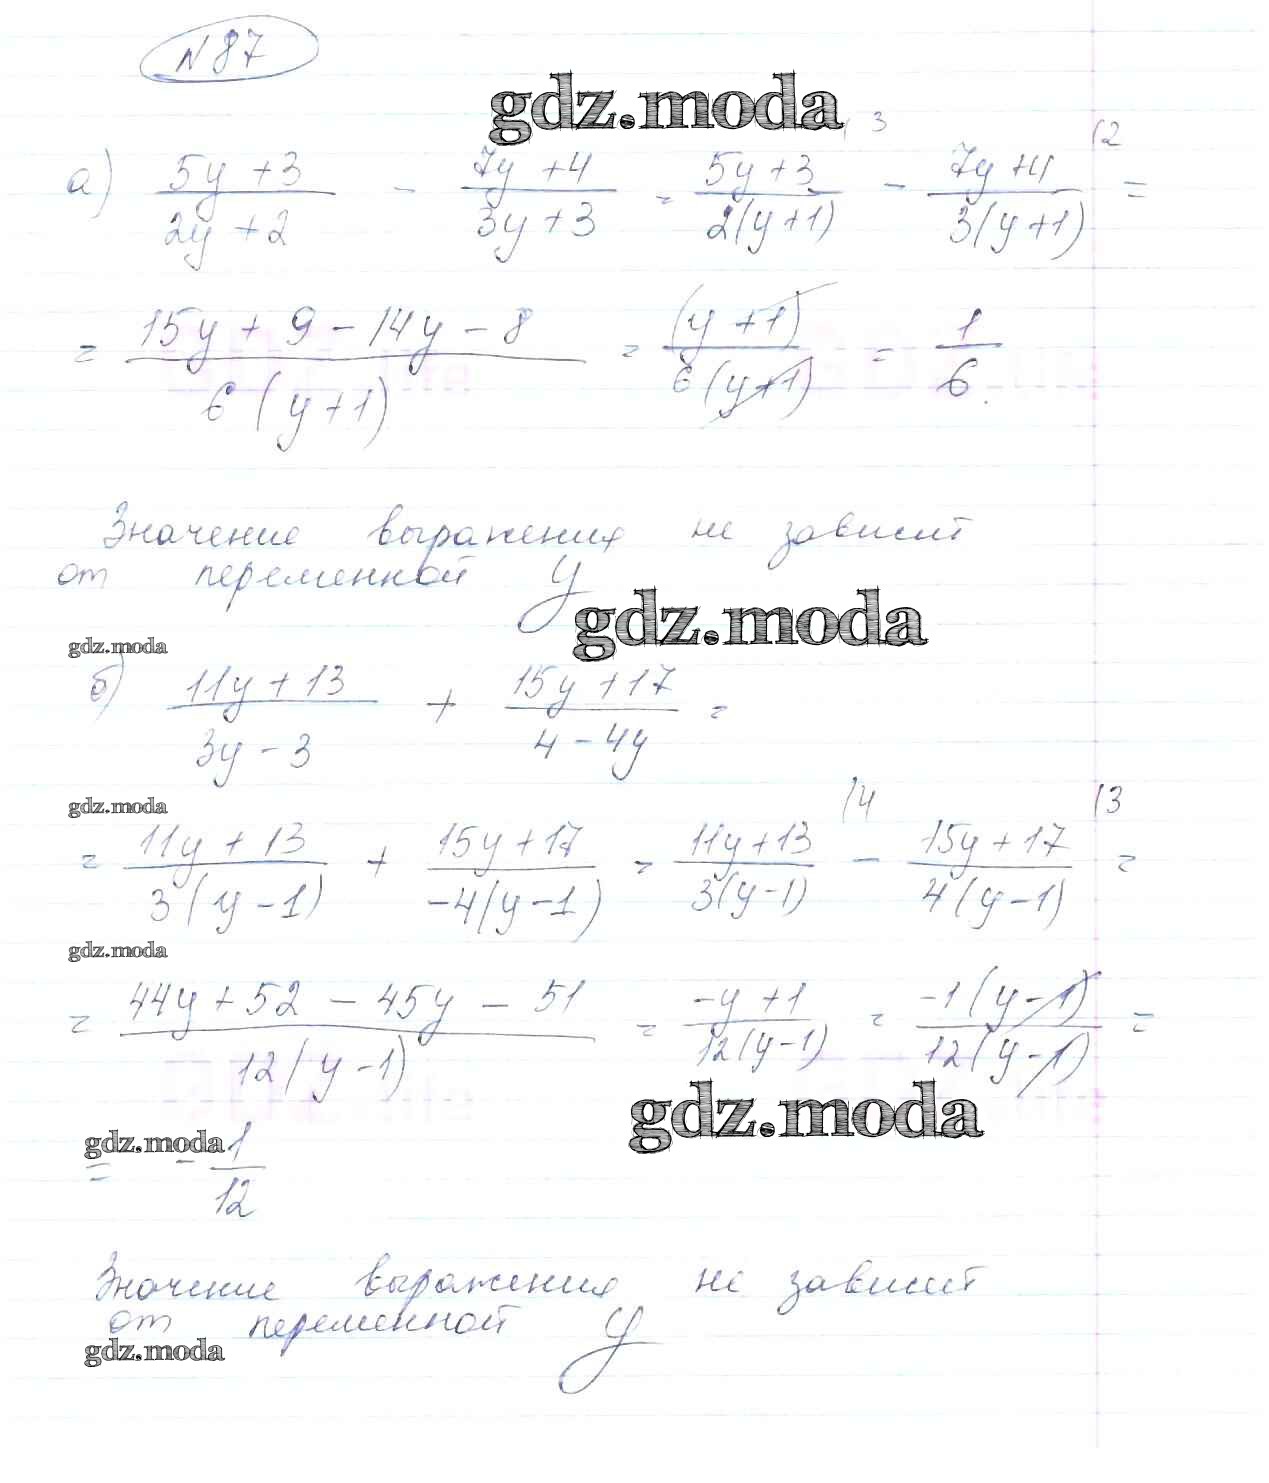 N 87
gdz.moda
а) (5y+3)/(2y+2) - (7y+4)/(3y+3) = (5y+3)/(2(y+1)) |3 - (7y+4)/(3(y+1)) |2 =
= (15y+9-14y-8)/(6(y+1)) = (y+1)/(6(y+1)) = 1/6.
Значение выражения не зависит
от переменной y
gdz.moda
gdz.moda
б) (11y+13)/(3y-3) + (15y+17)/(4-4y) =
gdz.moda
= (11y+13)/(3(y-1)) + (15y+17)/(-4(y-1)) = (11y+13)/(3(y-1)) |4 - (15y+17)/(4(y-1)) |3 =
gdz.moda
= (44y+52-45y-51)/(12(y-1)) = (-y+1)/(12(y-1)) = (-1(y-1))/(12(y-1)) =
gdz.moda
gdz.moda
= - 1/12
Значение выражения не зависит
от переменной y
gdz.moda